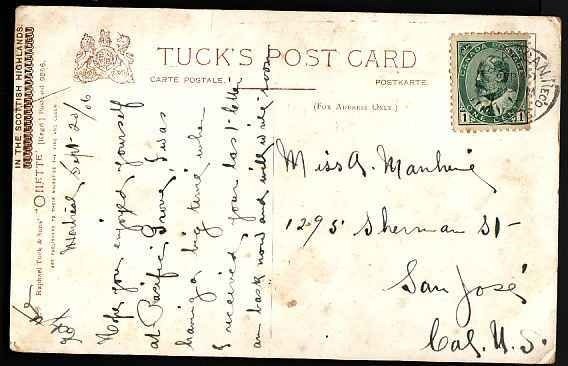 TUCK'S POST CARD
CARTE POSTALE.
POSTKARTE.
(For Address Only.)
CANADA POSTAGE
1 1
SAN
Miss A.
1295 Sherman St-
San José
Cal. U.S.
IN THE SCOTTISH HIGHLANDS.
Raphael Tuck & Sons' "OILETTE" [Regd.] Postcard
ART PUBLISHERS TO THEIR MAJESTIES THE KING AND QUEEN
Montreal, Sept 20/06
Hope you enjoyed yourself
at Pacific Grove, I was
having a big time when
I received your last letter
am back now and will write soon